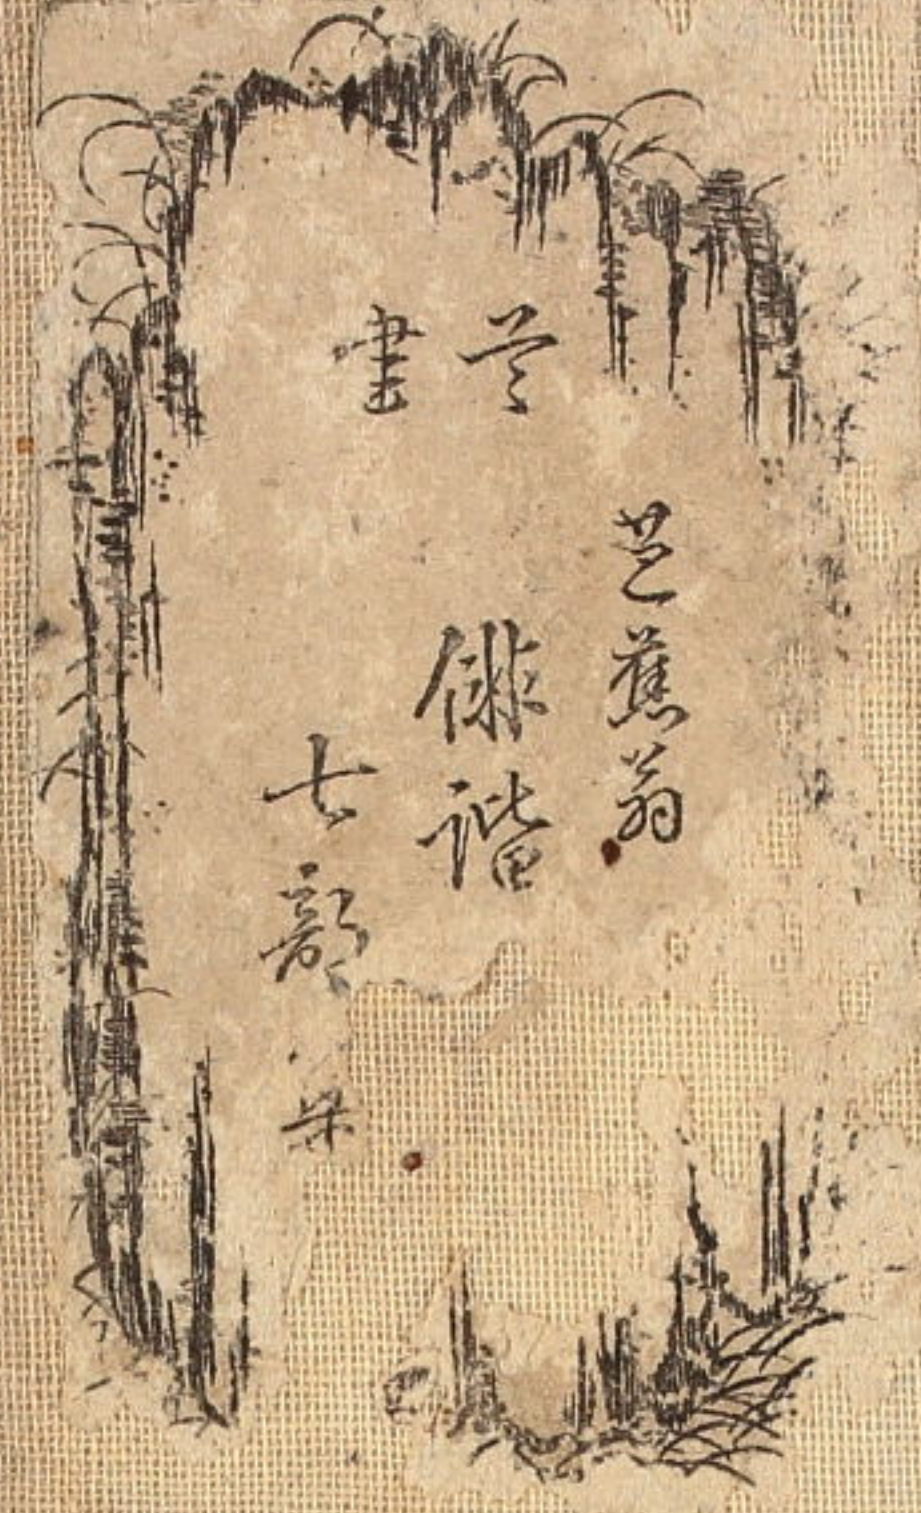 芭蕉翁
俳諧
七部